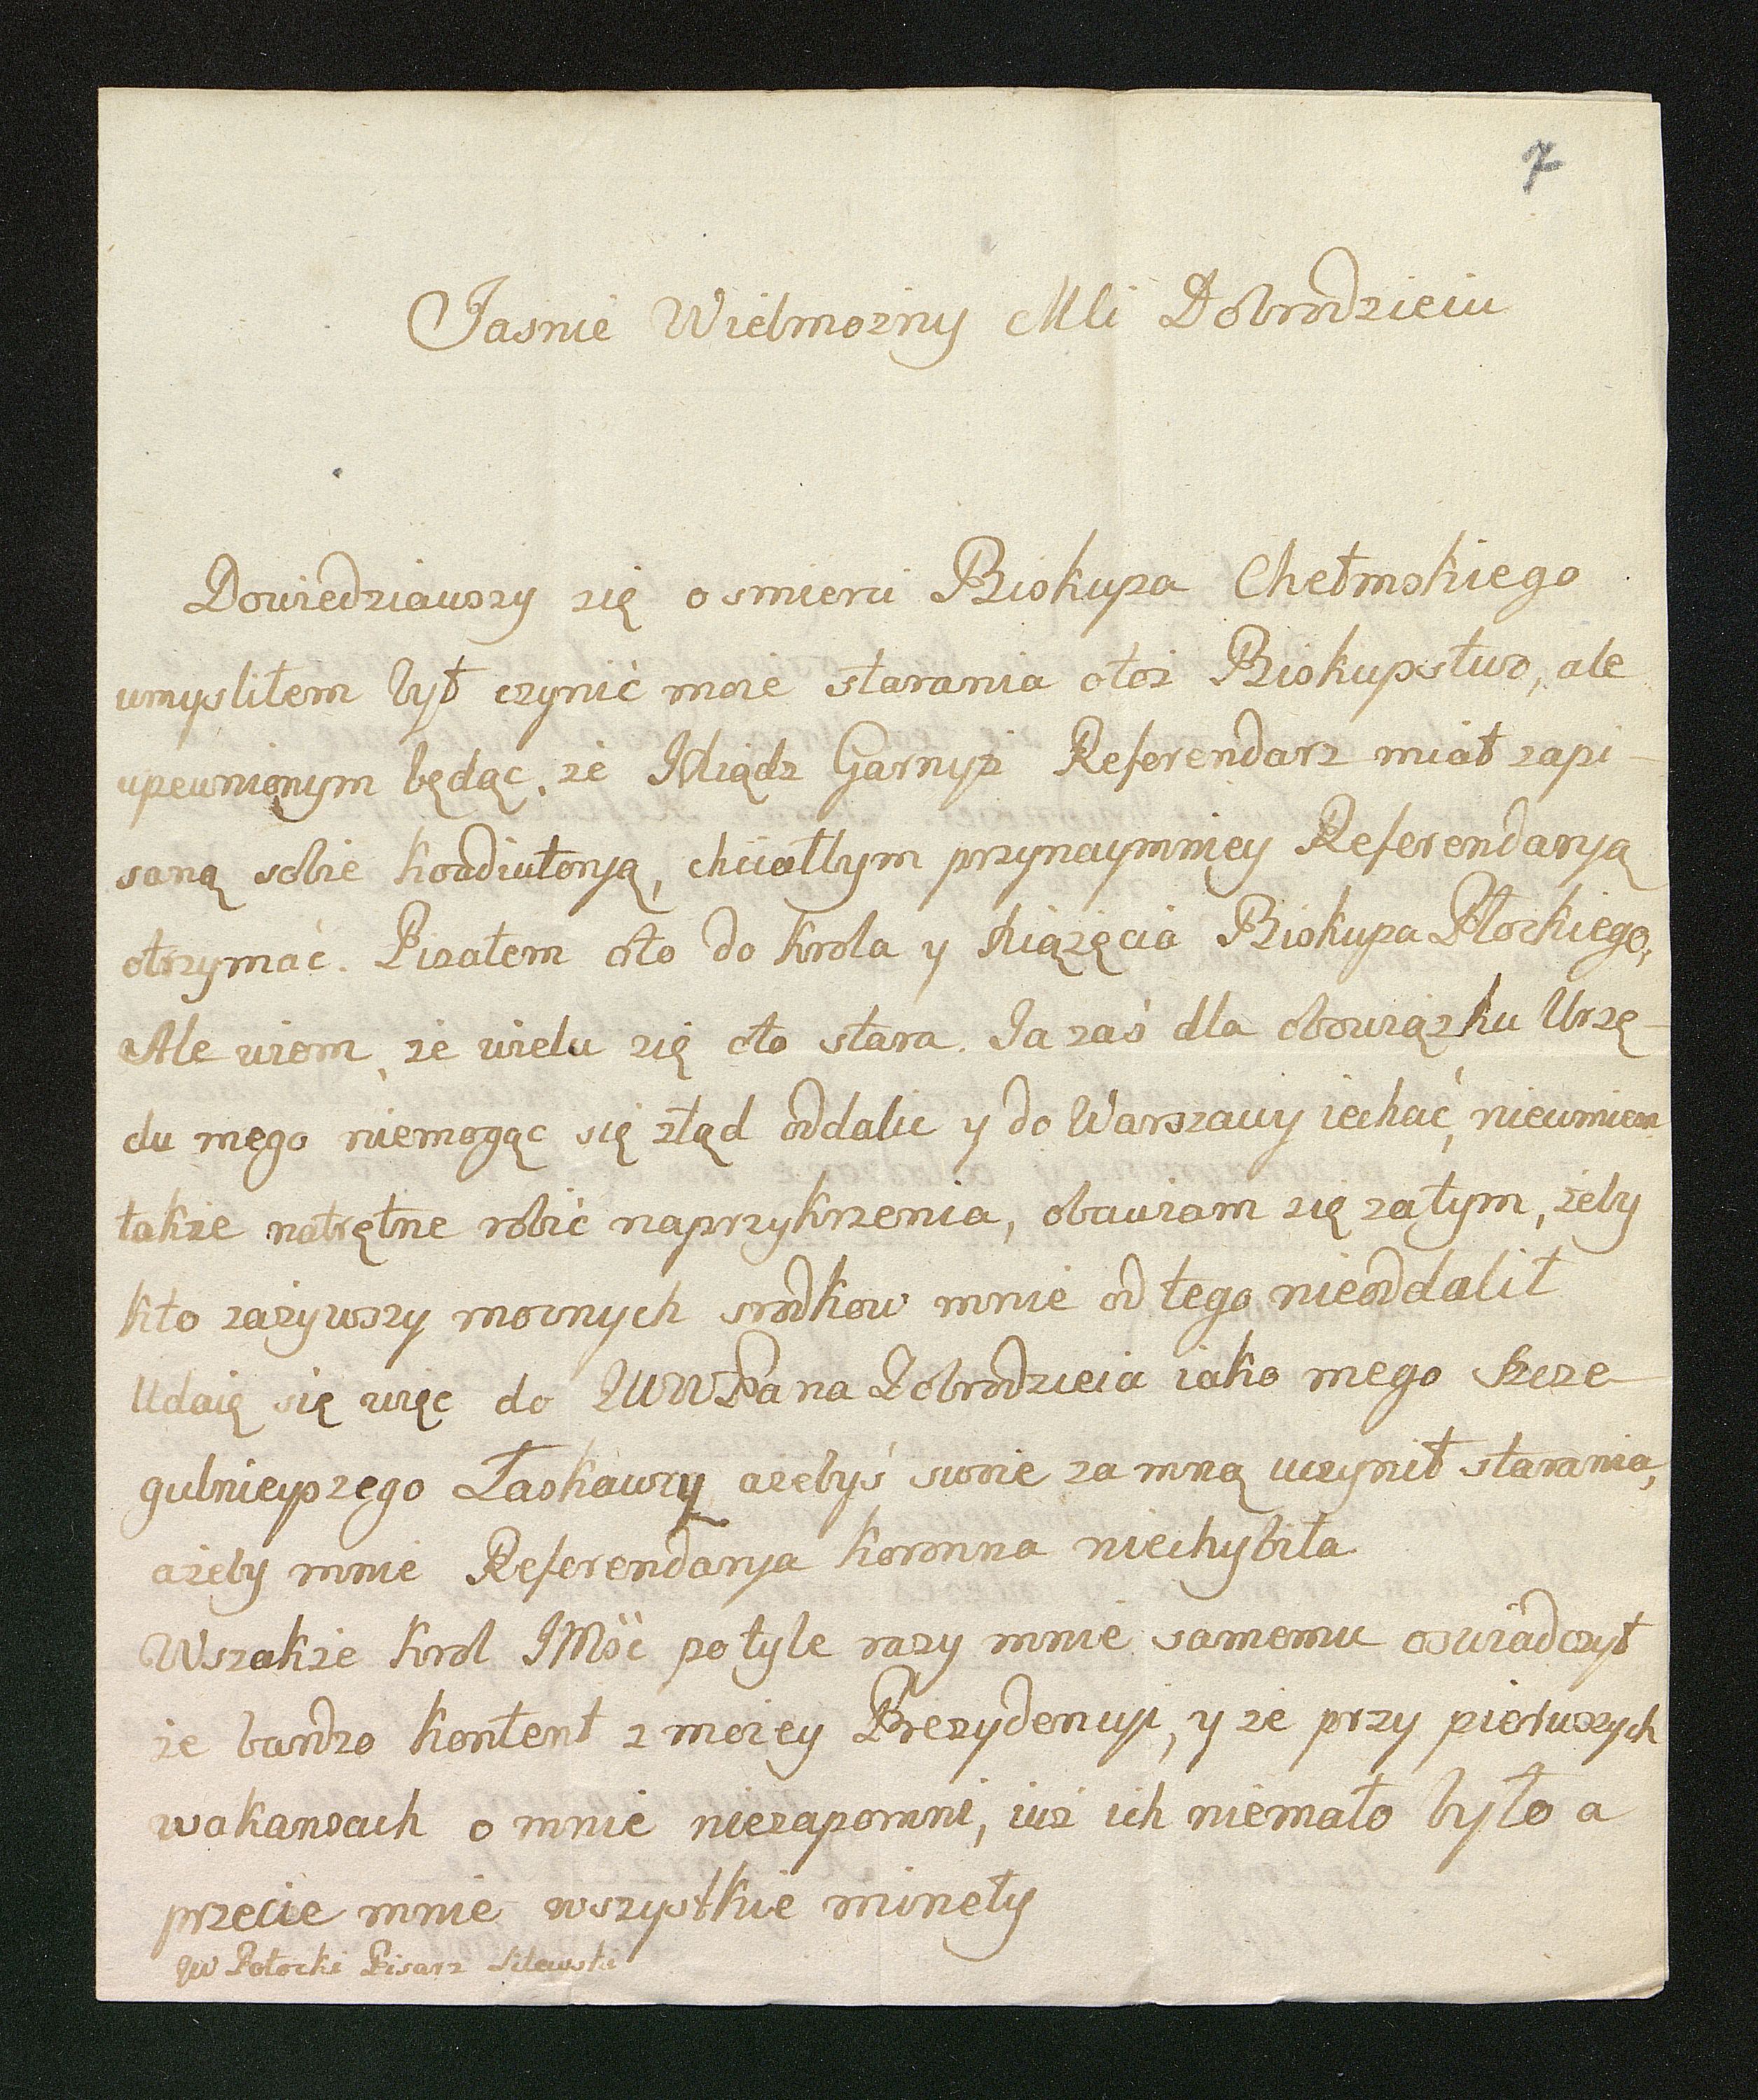 7
Jasnie Wielmozny Mli Dobrodzieiu
Dowiedziawszy się o smierci Biskupa Chełmskiego
umysliłem był czynić moie starania otoż Biskupstwo, ale
upewnionym będąc, że JXiądz Garnysz Referendarz miał zapi-
saną sobie Koadiutoryą, chciałbym przynaymniey Referendaryą
otrzymać. Pisałem oto do Krola y Xiążęcia Biskupa Płockiego,
Ale wiem, że wielu się oto stara. Ja zaś dla obowiązku Urzę-
du mego niemogąc się ztąd oddalic y do Warszawy iechać, nieumiem
także natrętne robić naprzykrzenia, obawiam się zatym, żeby
kto zażywszy mocnych srodkow mnie od tego nieoddalił
Udaię się więc do JWWPana Dobrodzieia iako mego Szcze-
gulnieyszego Łaskawcy ażebyś swoie za mną uczynił starania,
ażeby mnie Referendarya Koronna niechybiła
Wszakże Krol JMść potyle razy mnie samemu oswiadczył
że bardzo kontent z moiey Prezydencyi, y że przy pierwszych
wakansach o mnie niezapomni, iuż ich niemało było a
przecie mnie wszystkie minęły
JW Potocki Pisarz Litewski